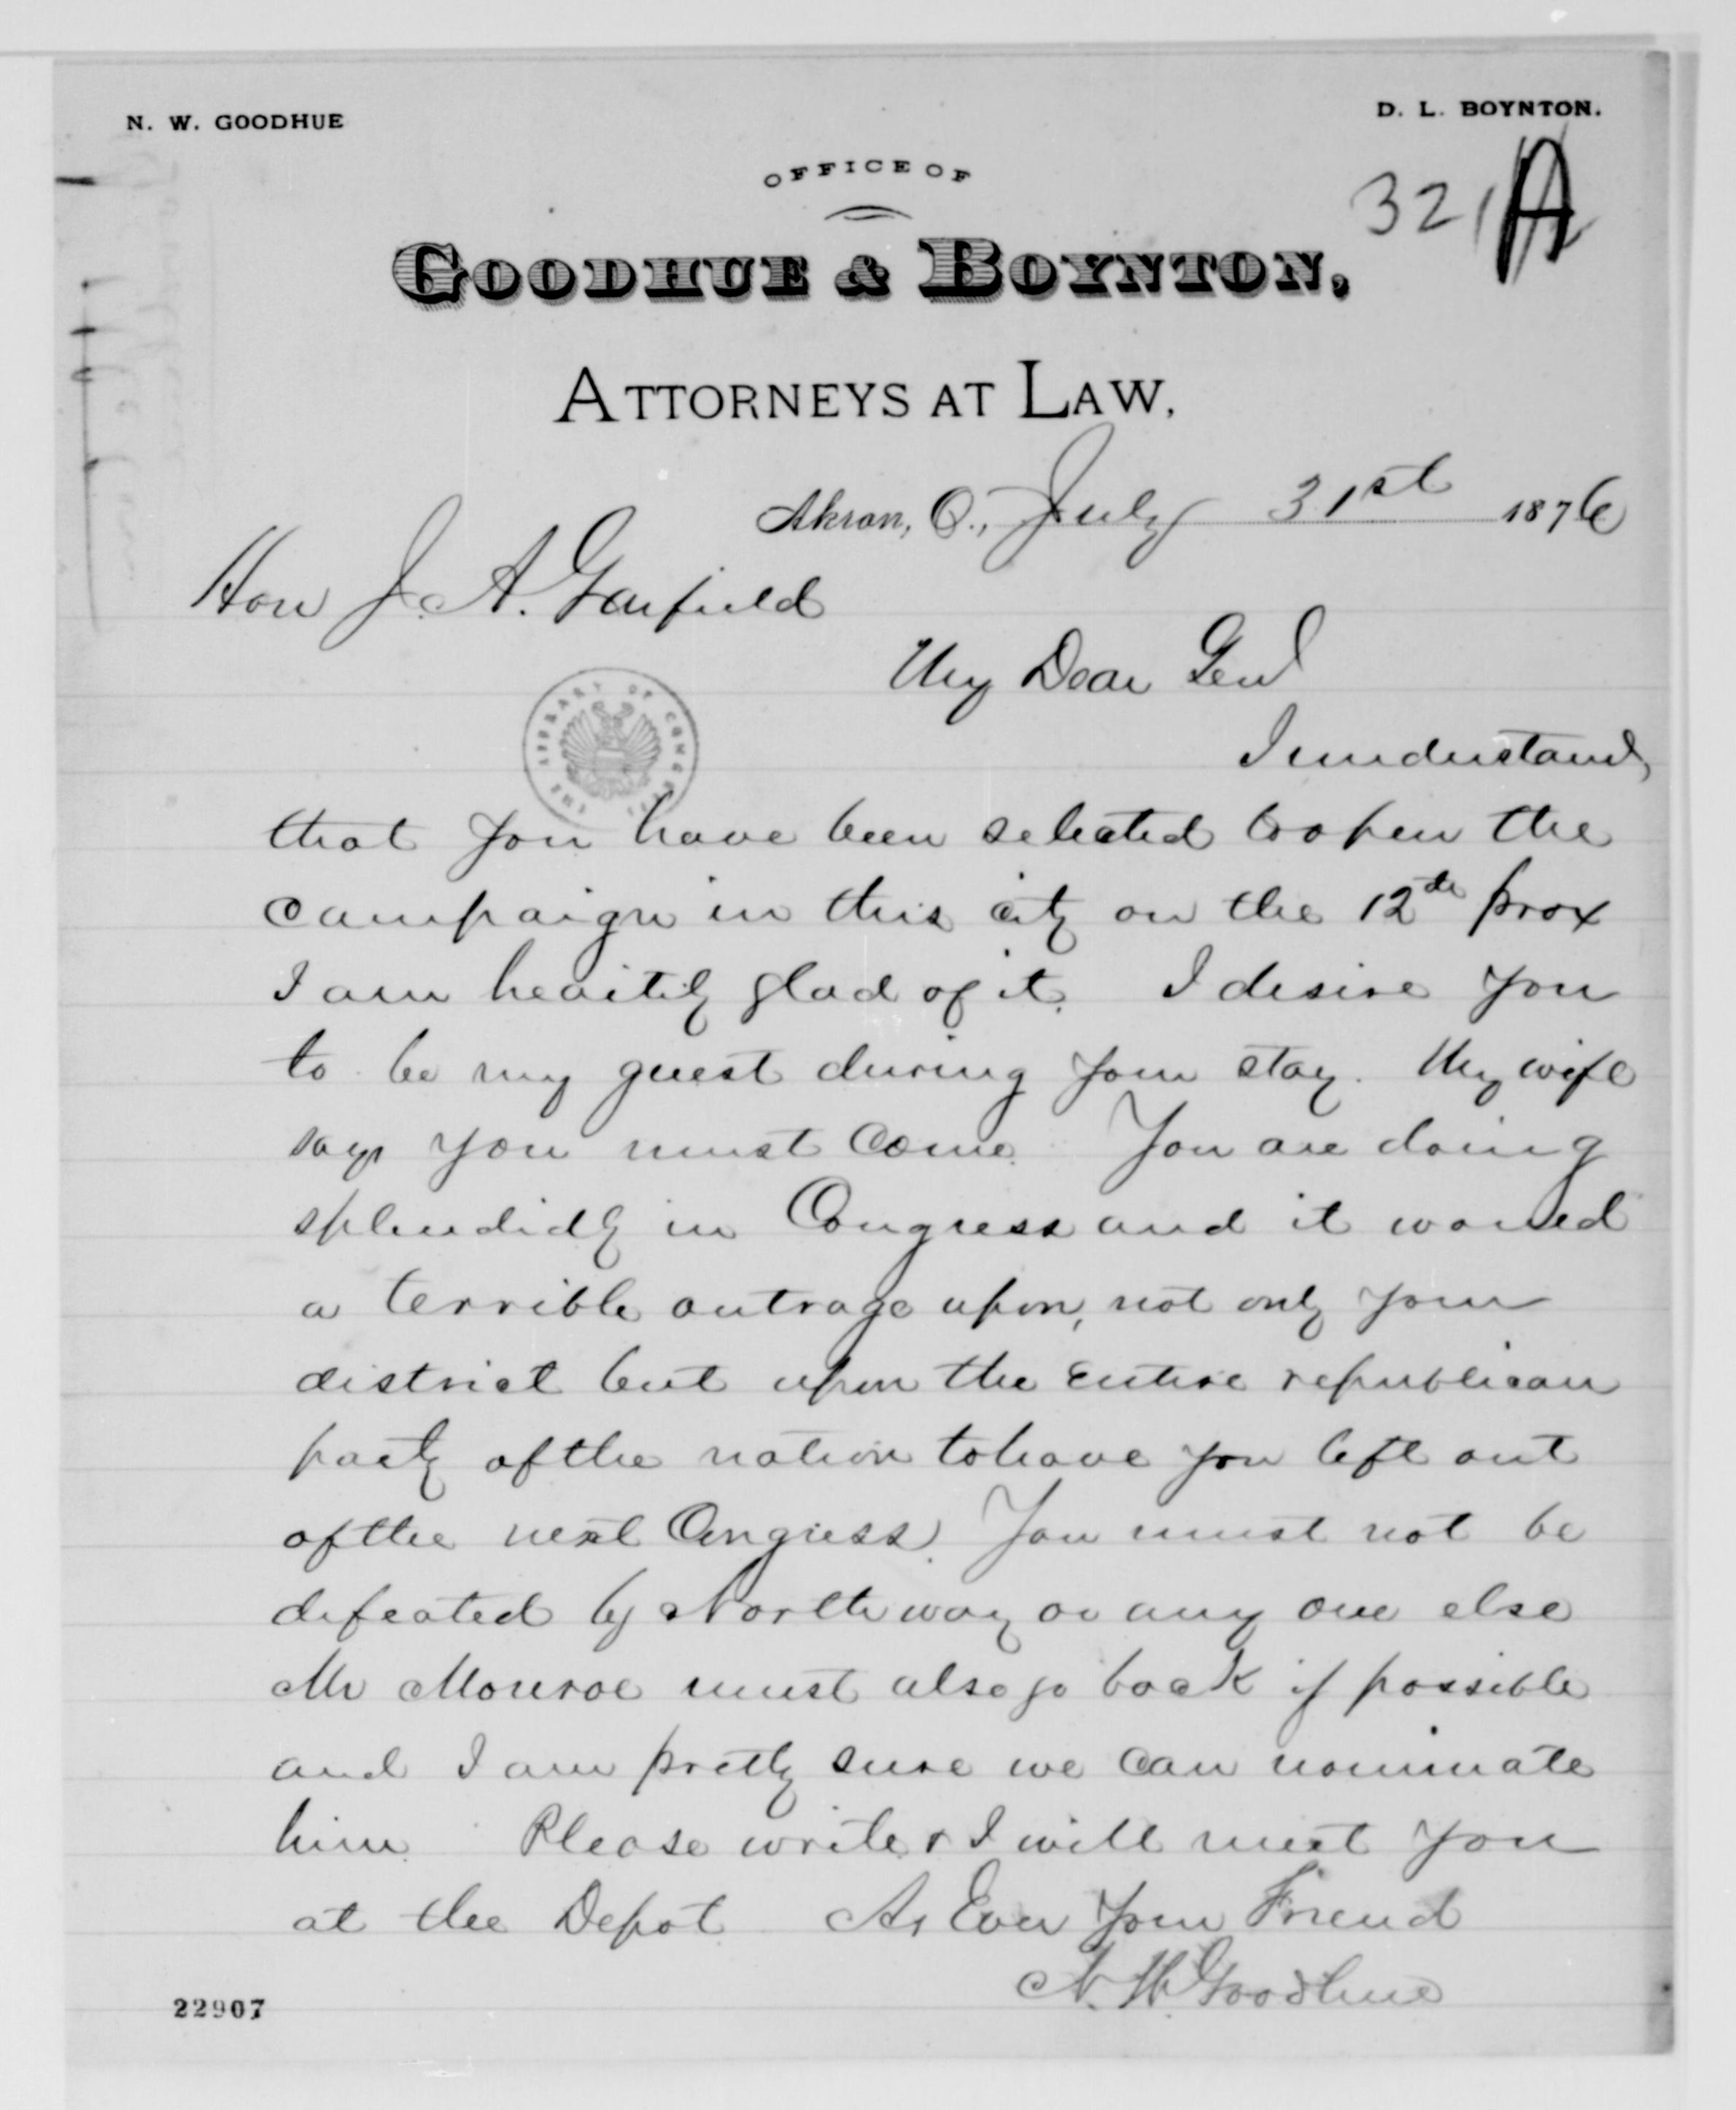 N. W. GOODHUE
D. L. BOYNTON.
OFFICE OF
321 A
GOODHUE & BOYNTON,
ATTORNEYS AT LAW,
Akron, O., July 31st 1876
Hon J. A. Garfield
My Dear Genl
I understand,
THE LIBRARY OF CONGRESS
that you have been selected to open the
campaign in this city on the 12th prox
I am heartily glad of it. I desire you
to be my guest during your stay. My wife
says you must come. You are doing
splendidly in Congress and it would
a terrible outrage upon, not only your
district but upon the entire republican
party of the nation to have you left out
of the next Congress. You must not be
defeated by Northway or any one else
Mr Monroe must also go back if possible
and I am pretty sure we can nominate
him. Please write & I will meet you
at the Depot As Ever Your Friend
N. W. Goodhue
22907